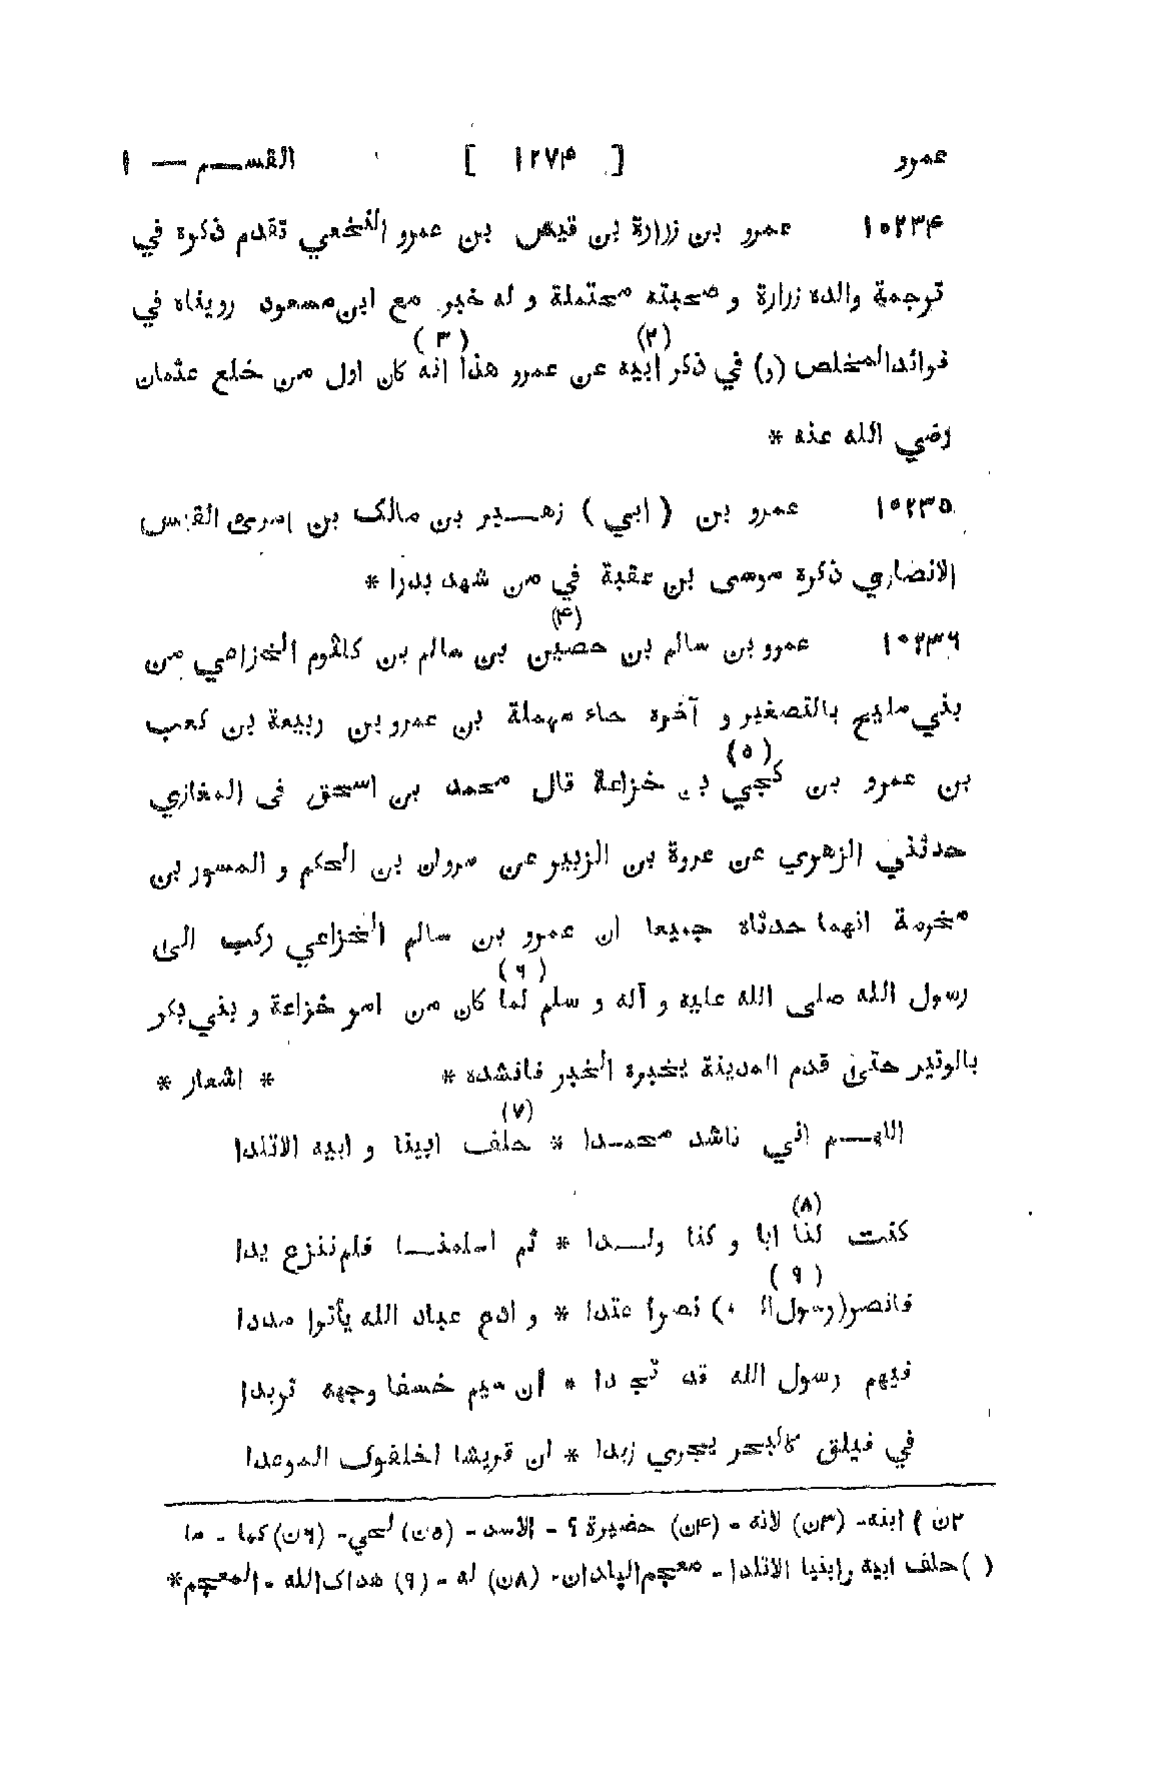 عمرو [ ١٢٧۴ ] القســم — ١
١٠٢٣۴ عمرو بن زرارة بن قيس بن عمرو النخعي تقدم ذكره في
ترجمة والده زرارة و صحبته محتملة و له خبر مع ابن مسعود رويناه في
فوائدالمخلص (و) في ذكر ابيه (٢) عن عمرو هذا انه (٣) كان اول من خلع عثمان
رضي الله عنه *
١٠٢٣٥ عمرو بن ( ابي ) زهــير بن مالک بن امرئ القيس
الانصاري ذكره موسى بن عقبة في من شهد بدرا *
١٠٢٣٦ عمرو بن سالم بن حصين (۴) بن سالم بن كلثوم الخزاعي من
بني مليح بالتصغير و آخره حاء مهملة بن عمرو بن ربيعة بن كعب
بن عمرو بن كجي (٥) بن خزاعة قال محمد بن اسحق فى المغازي
حدثني الزهري عن عروة بن الزبير عن مروان بن الحكم و المسور بن
مخرمة انهما حدثاه جميعا ان عمرو بن سالم الخزاعي ركب الى
رسول الله صلى الله عليه و آله و سلم لما (٦) كان من امر خزاعة و بني بكر
بالوتير حتى قدم المدينة يخبره الخبر فانشده * * اشعار *
اللهــم اني ناشد محمـدا * حلف (٧) ابينا و ابيه الاتلدا
كنت لنا (٨) ابا و كنا ولــدا * ثم اسلمنــا فلم ننزع يدا
فانصر(رسول الله) (٩) نصرا عتدا * و ادع عباد الله يأتوا مددا
فيهم رسول الله قد تجردا * ان سيم خسفا وجهه تربدا
في فيلق كالبحر يجري زبدا * ان قريشا اخلفوک الموعدا
٢ن ) ابنه- (٣ن) لانه - (۴ن) حضيرة ؟ - الاسد - (٥ن) لحي- (٦ن) كها - ما
( ) حلف ابيه وابنيا الاتلدا - معجم البلدان- (٨ن) له - (٩) هداک الله - المعجم*